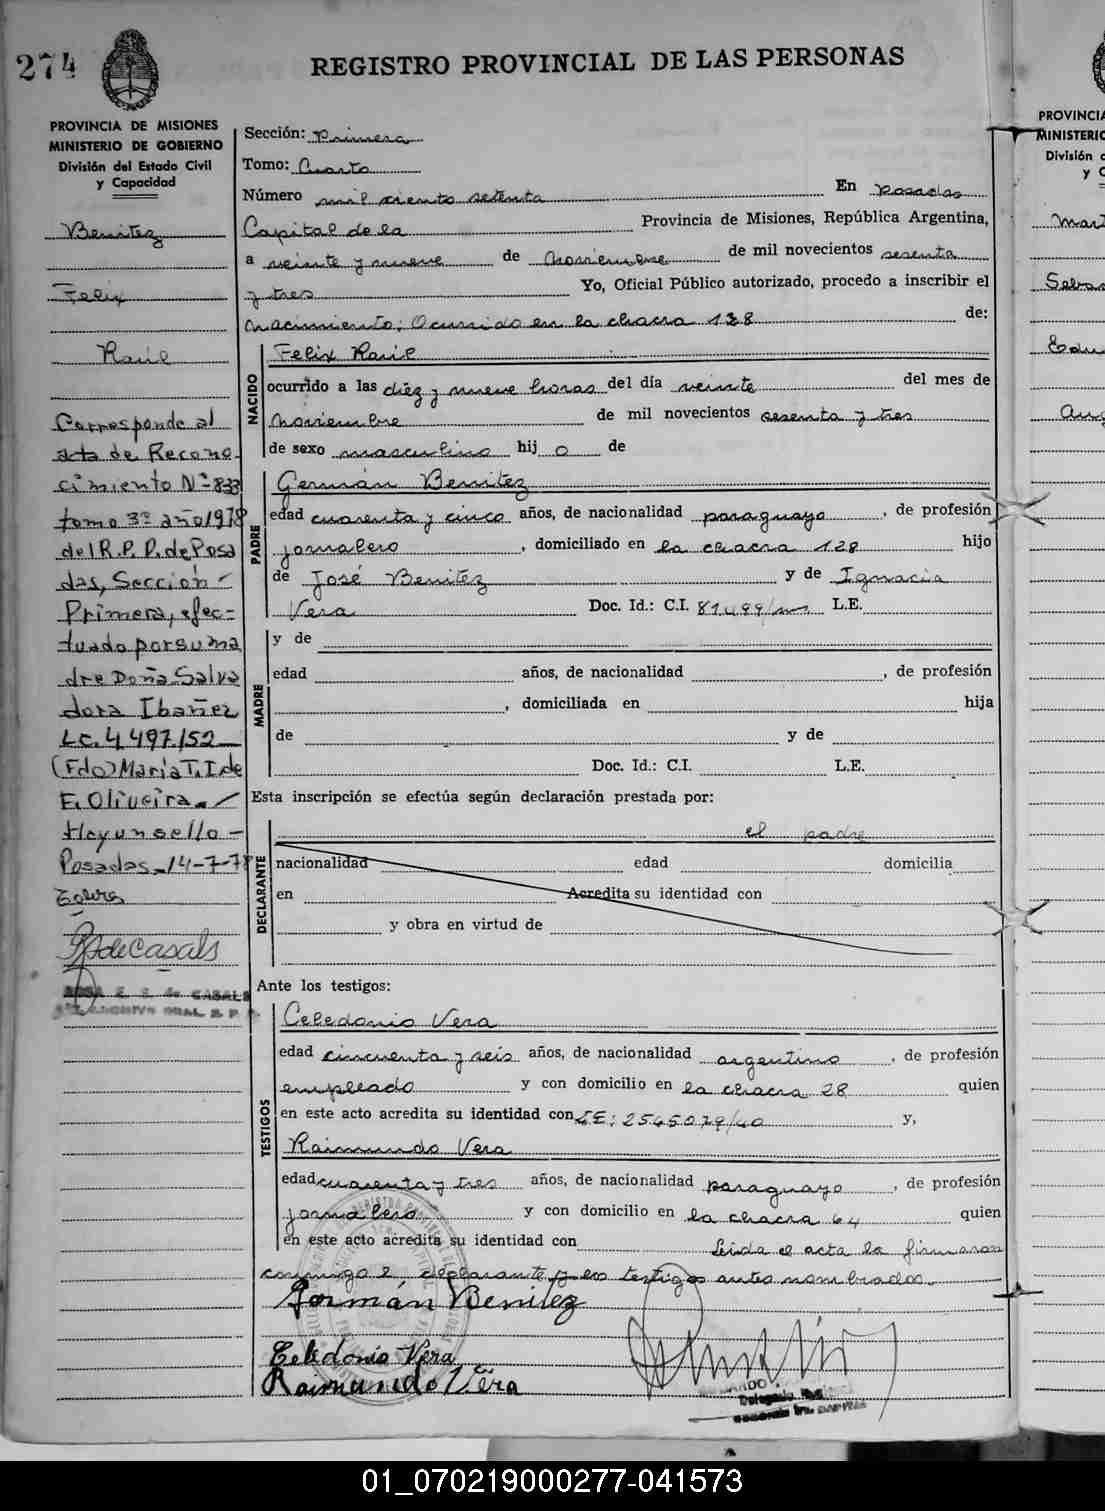 274
REGISTRO PROVINCIAL DE LAS PERSONAS
PROVINCIA DE MISIONES
MINISTERIO DE GOBIERNO
División del Estado Civil
y Capacidad
Benitez
Felix
Raúl
Corresponde al
acta de Recono-
cimiento Nº 833
tomo 3º año 1978
del R.P.P. de Posa
das, Sección
Primera, efec-
tuado por su ma
dre Doña Salva
dora Ibañez
Lc. 4.497.152
(Fdo) Maria T. I. de
E. Oliveira.-/
Hay un sello-
Posadas-14-7-78
RSdeCasals
ROSA E. S. de CASALS
Sección: Primera
Tomo: Cuarto
Número mil ciento setenta En Posadas
Capital de la Provincia de Misiones, República Argentina,
a veinte y nueve de Noviembre de mil novecientos sesenta
y tres Yo, Oficial Público autorizado, procedo a inscribir el
Nacimiento: Ocurrido en la chacra 128 de:
NACIDO
Felix Raúl
ocurrido a las diez y nueve horas del día veinte del mes de
Noviembre de mil novecientos sesenta y tres
de sexo masculino hij o de
PADRE
Germán Benitez
edad cuarenta y cinco años, de nacionalidad paraguayo, de profesión
jornalero, domiciliado en la chacra 128 hijo
de José Benitez y de Ignacia
Vera Doc. Id.: C.I. 81.499/ L.E.
MADRE
y de
edad años, de nacionalidad , de profesión
, domiciliada en hija
de y de
Doc. Id.: C.I. L.E.
Esta inscripción se efectúa según declaración prestada por:
el padre
DECLARANTE
nacionalidad edad domicilia
en Acredita su identidad con
y obra en virtud de
Ante los testigos:
TESTIGOS
Celedonio Vera
edad cincuenta y seis años, de nacionalidad argentino, de profesión
empleado y con domicilio en la chacra 28 quien
en este acto acredita su identidad con LE: 2565079/40 y,
Raimundo Vera
edad cuarenta y tres años, de nacionalidad paraguayo, de profesión
jornalero y con domicilio en la chacra 64 quien
en este acto acredita su identidad con Leida el acta la firmaron
conmigo el declarante y los testigos antes nombrados.
Germán Benitez
Celedonio Vera
Raimundo Vera
PROVINCIA
MINISTERIO
División d
y C
Mart
Sebas
Edu
Aug
01_070219000277-041573